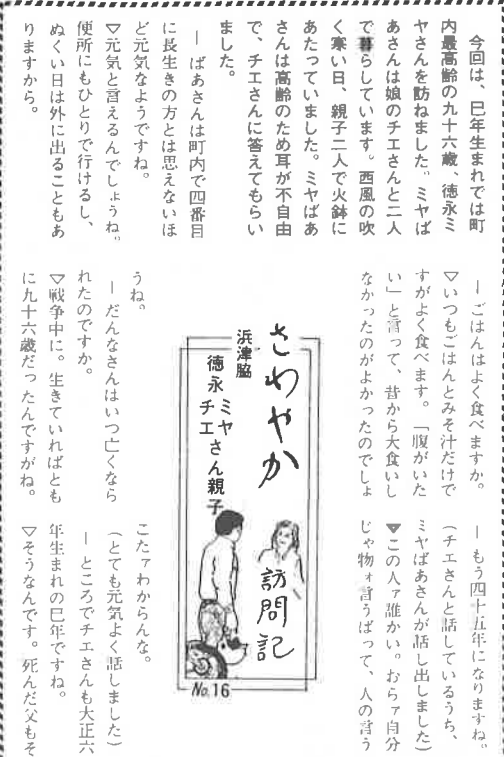 今回は、巳年生まれでは町
内最高齢の九十六歳、徳永ミ
ヤさんを訪ねました。ミヤば
あさんは娘のチエさんと二人
で暮らしています。西風の吹
く寒い日、親子二人で火鉢に
あたっていました。ミヤばあ
さんは高齢のため耳が不自由
で、チエさんに答えてもらい
ました。
― ばあさんは町内で四番目
に長生きの方とは思えないほ
ど元気なようですね。
▽元気と言えるんでしょうね。
便所にもひとりで行けるし、
ぬくい日は外に出ることもあ
りますから。
― ごはんはよく食べますか。
▽いつもごはんとみそ汁だけで
すがよく食べます。「腹がいた
い」と言って、昔から大食いし
なかったのがよかったのでしょ
うね。
― だんなさんはいつ亡くなら
れたのですか。
▽戦争中に。生きていればとも
に九十六歳だったんですがね。
さわやか
訪問記
浜津脇
徳永 ミヤ
チエ
さん親子
No.16
― もう四十五年になりますね。
(チエさんと話しているうち、
ミヤばあさんが話し出しました)
▼この人ァ誰かい。おらァ自分
じゃ物ォ言うばって、人の言う
こたァわからんな。
(とても元気よく話しました)
― ところでチエさんも大正六
年生まれの巳年ですね。
▽そうなんです。死んだ父もそ